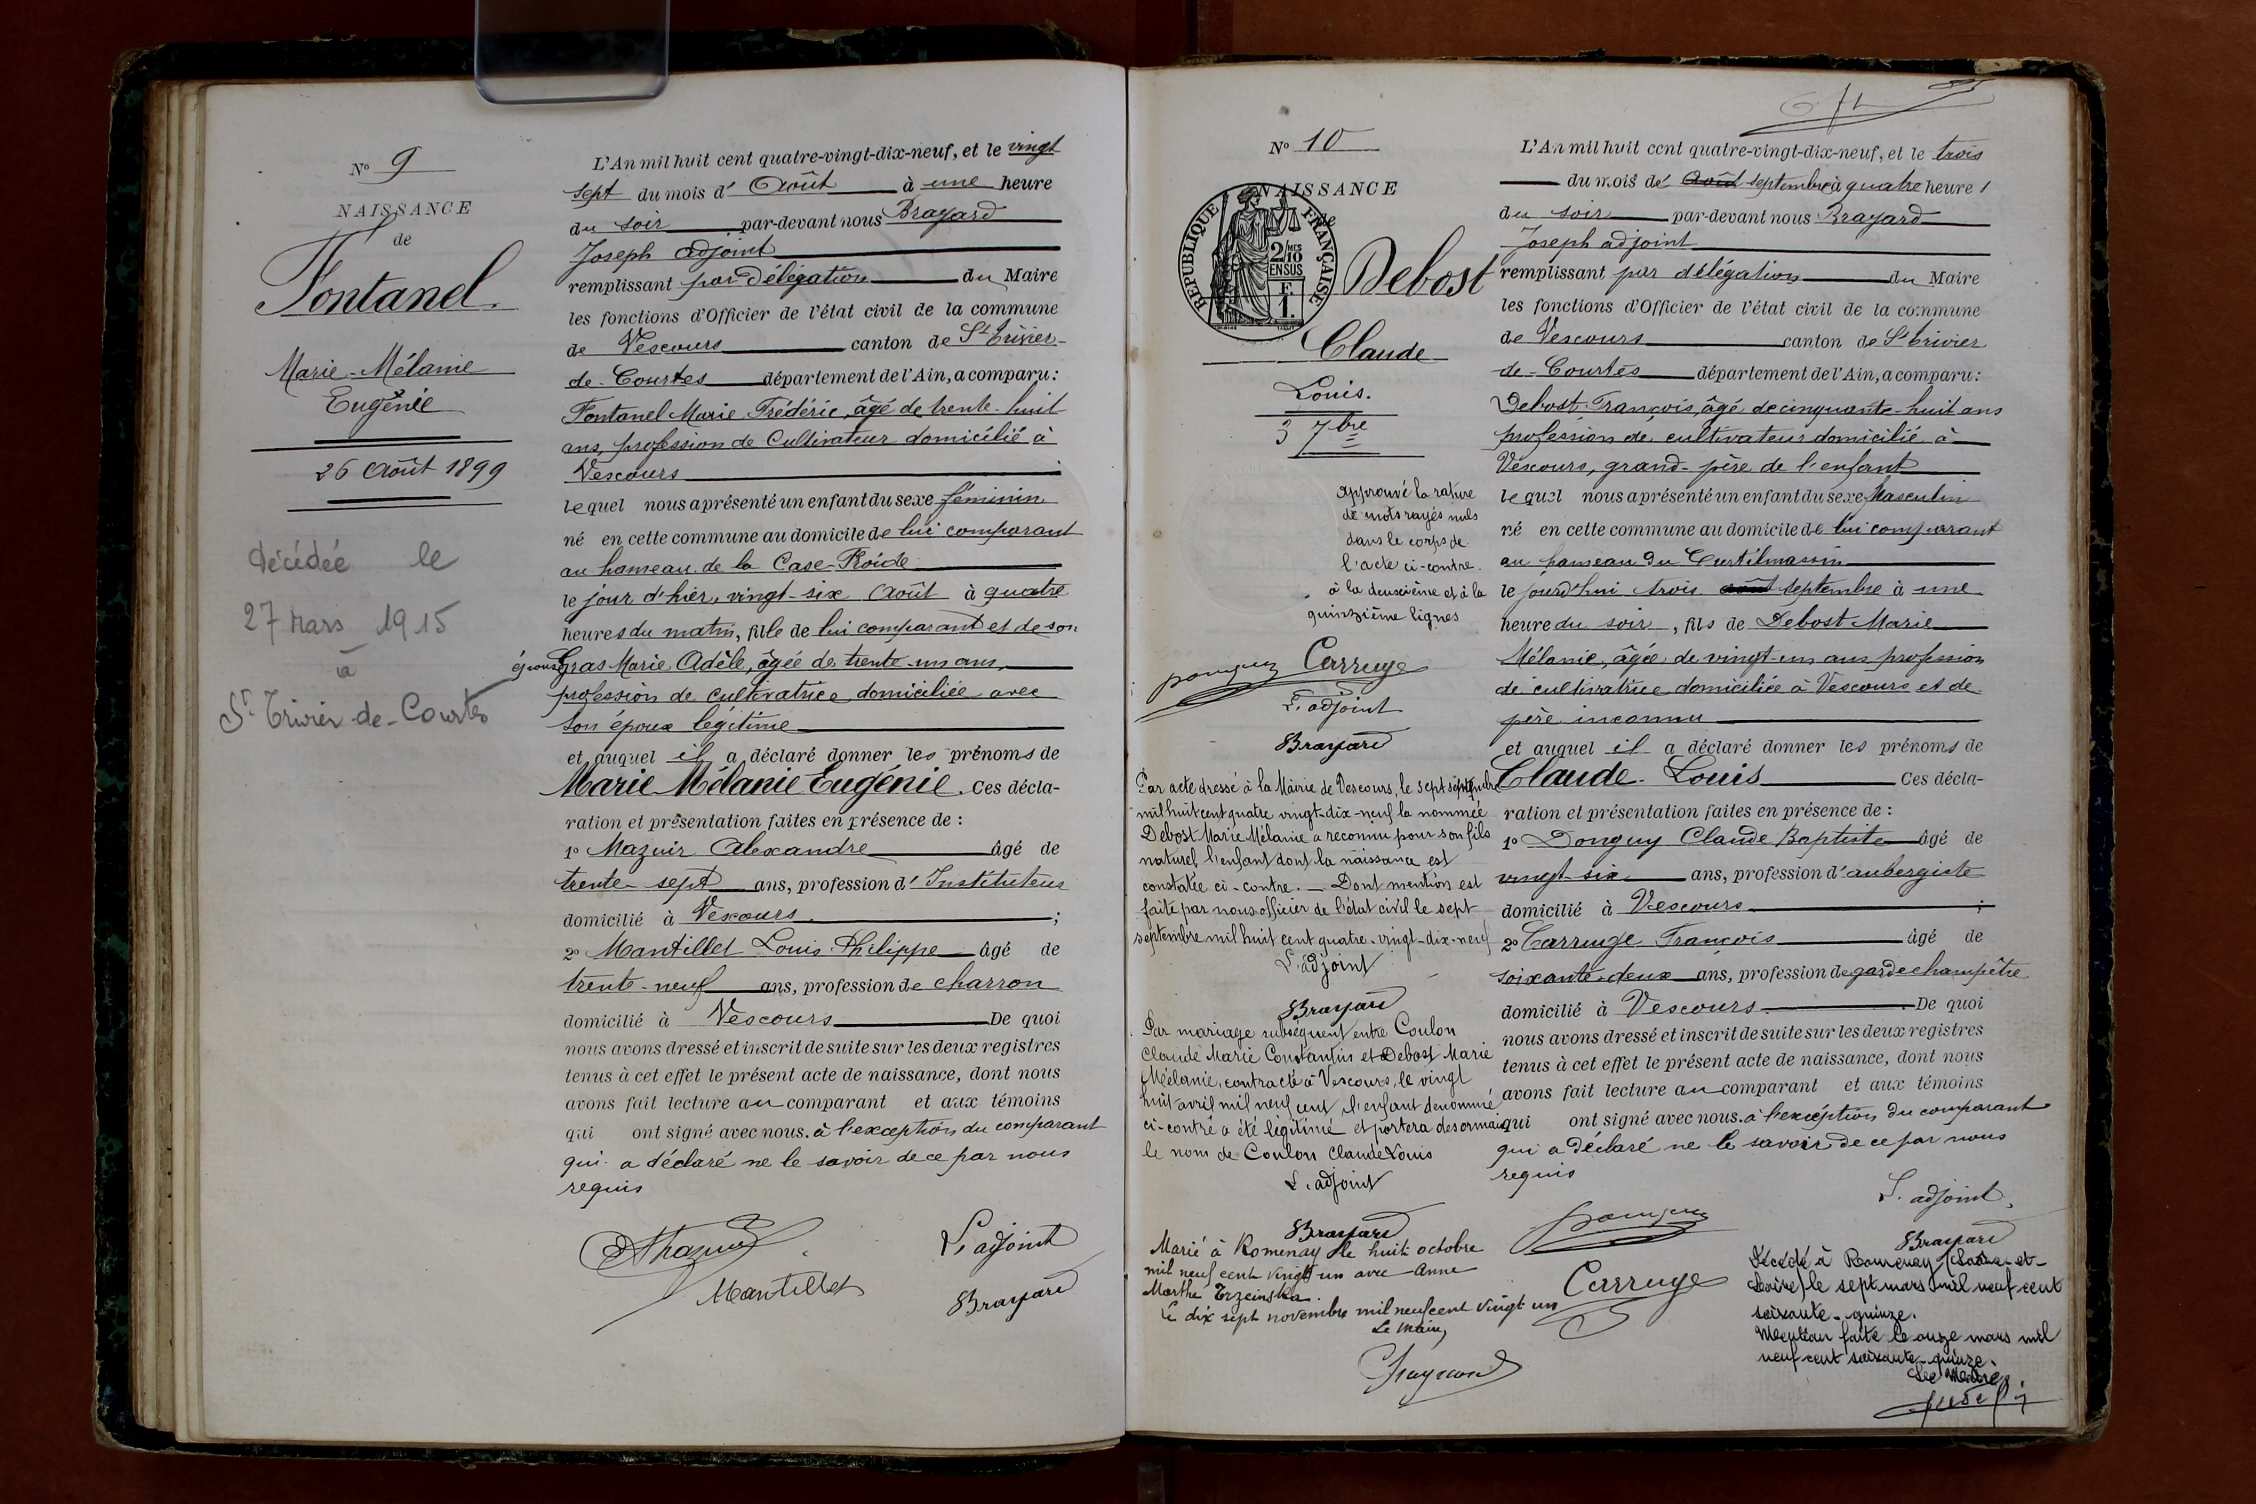 N° 9
NAISSANCE
de
Fontanel.
Marie-Mélanie
Eugénie
26 Août 1899
Décédée le
27 Mars 1915
à
St Trivier-de-Courtes
L'An mil huit cent quatre-vingt-dix-neuf, et le vingt
sept du mois d' Août à une heure
du soir par-devant nous Brayard
Joseph adjoint
remplissant par délégation du Maire
les fonctions d'Officier de l'état civil de la commune
de Vescours canton de St Trivier-
de-Courtes département de l'Ain, a comparu:
Fontanel Marie Frédéric, âgé de trente-huit
ans, profession de Cultivateur domicilié à
Vescours
lequel nous a présenté un enfant du sexe féminin
né en cette commune au domicile de lui comparant
au hameau de la Case-Roide
le jour d'hier, vingt-six Août à quatre
heures du matin, fille de lui comparant et de son
épouse Gras Marie Adèle, âgée de trente-un ans,
profession de cultivatrice domiciliée avec
son époux légitime
et auquel il a déclaré donner les prénoms de
Marie Mélanie Eugénie. Ces décla-
ration et présentation faites en présence de :
1° Mazuir Alexandre âgé de
trente-sept ans, profession d' Instituteur
domicilié à Vescours ;
2° Mantillet Louis Philippe âgé de
trente-neuf ans, profession de charron
domicilié à Vescours De quoi
nous avons dressé et inscrit de suite sur les deux registres
tenus à cet effet le présent acte de naissance, dont nous
avons fait lecture au comparant et aux témoins
qui ont signé avec nous. à l'exception du comparant
qui a déclaré ne le savoir de ce par nous
requis
L'adjoint
Mantillet
Brayard
N° 10
NAISSANCE
de
RÉPUBLIQUE FRANÇAISE
2/10 MES
EN SUS
F.
1.
Debost
Claude
Louis.
3 7bre
approuvé la rature
de mots rayés nuls
dans le corps de
l'acte ci-contre.
à la deuxième et à la
quinzième lignes
Carruge
L'adjoint
Brayard
Par acte dressé à la Mairie de Vescours, le sept septembre
mil huit cent quatre vingt-dix-neuf la nommée
Debost Marie Mélanie a reconnu pour son fils
naturel l'enfant dont la naissance est
constatée ci-contre. — Dont mention est
faite par nous officier de l'état civil le sept
septembre mil huit cent quatre-vingt-dix-neuf
L'adjoint
Brayard
Par mariage subséquent entre Coulon
Claude Marie Constantin et Debost Marie
Mélanie, contracté à Vescours, le vingt
huit avril mil neuf cent l'enfant dénommé
ci-contre a été légitimé et portera désormais
le nom de Coulon Claude Louis
L'adjoint
Brayard
Marié à Romenay le huit octobre
mil neuf cent vingt un avec Anne
Marthe Trzeinska.
Le dix sept novembre mil neuf cent vingt un
Le Maire,
L'An mil huit cent quatre-vingt-dix-neuf, et le trois
du mois de Août septembre à quatre heures
du soir par-devant nous Brayard
Joseph adjoint
remplissant par délégation du Maire
les fonctions d'Officier de l'état civil de la commune
de Vescours canton de St Trivier
de-Courtes département de l'Ain, a comparu:
Debost François, âgé de cinquante-huit ans
profession de cultivateur domicilié à
Vescours, grand-père de l'enfant
lequel nous a présenté un enfant du sexe Masculin
né en cette commune au domicile de lui comparant
au hameau du Curtilmassin
le jourd'hui trois août septembre à une
heure du soir, fils de Debost Marie
Mélanie, âgée de vingt-un ans profession
de cultivatrice domiciliée à Vescours et de
père inconnu
et auquel il a déclaré donner les prénoms de
Claude-Louis Ces décla-
ration et présentation faites en présence de :
1° Donguy Claude Baptiste âgé de
vingt-six ans, profession d'aubergiste
domicilié à Vescours ;
2° Carruge François âgé de
soixante-deux ans, profession de garde champêtre
domicilié à Vescours De quoi
nous avons dressé et inscrit de suite sur les deux registres
tenus à cet effet le présent acte de naissance, dont nous
avons fait lecture au comparant et aux témoins
qui ont signé avec nous. à l'exception du comparant
qui a déclaré ne le savoir de ce par nous
requis
L'adjoint
Brayard
Carruge
Décédé à Romenay (Saône-et-
Loire) le sept mars mil neuf cent
soixante-quinze.
Mention faite le onze mars mil
neuf cent soixante-quinze.
Le Maire,